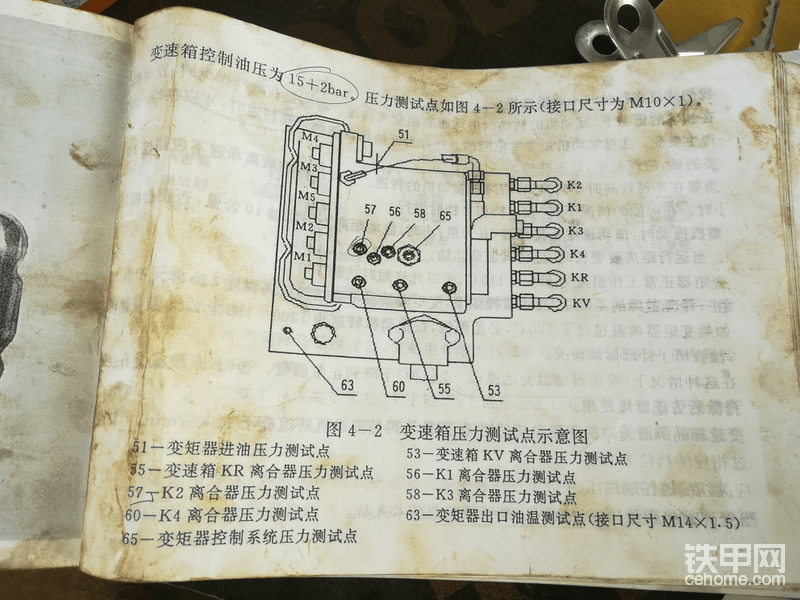 变速箱控制油压为15+2bar。压力测试点如图4-2所示(接口尺寸为M10×1)。
M4
51
M3
K2
M5
57
56
58
65
K1
K3
M2
K4
M1
KR
KV
63
60
55
53
图 4-2 变速箱压力测试点示意图
51-变矩器进油压力测试点
53-变速箱 KV 离合器压力测试点
55-变速箱 KR 离合器压力测试点
56-K1 离合器压力测试点
57-K2 离合器压力测试点
58-K3 离合器压力测试点
60-K4 离合器压力测试点
63-变矩器出口油温测试点(接口尺寸 M14×1.5)
65-变矩器控制系统压力测试点
铁甲网
cehome.com